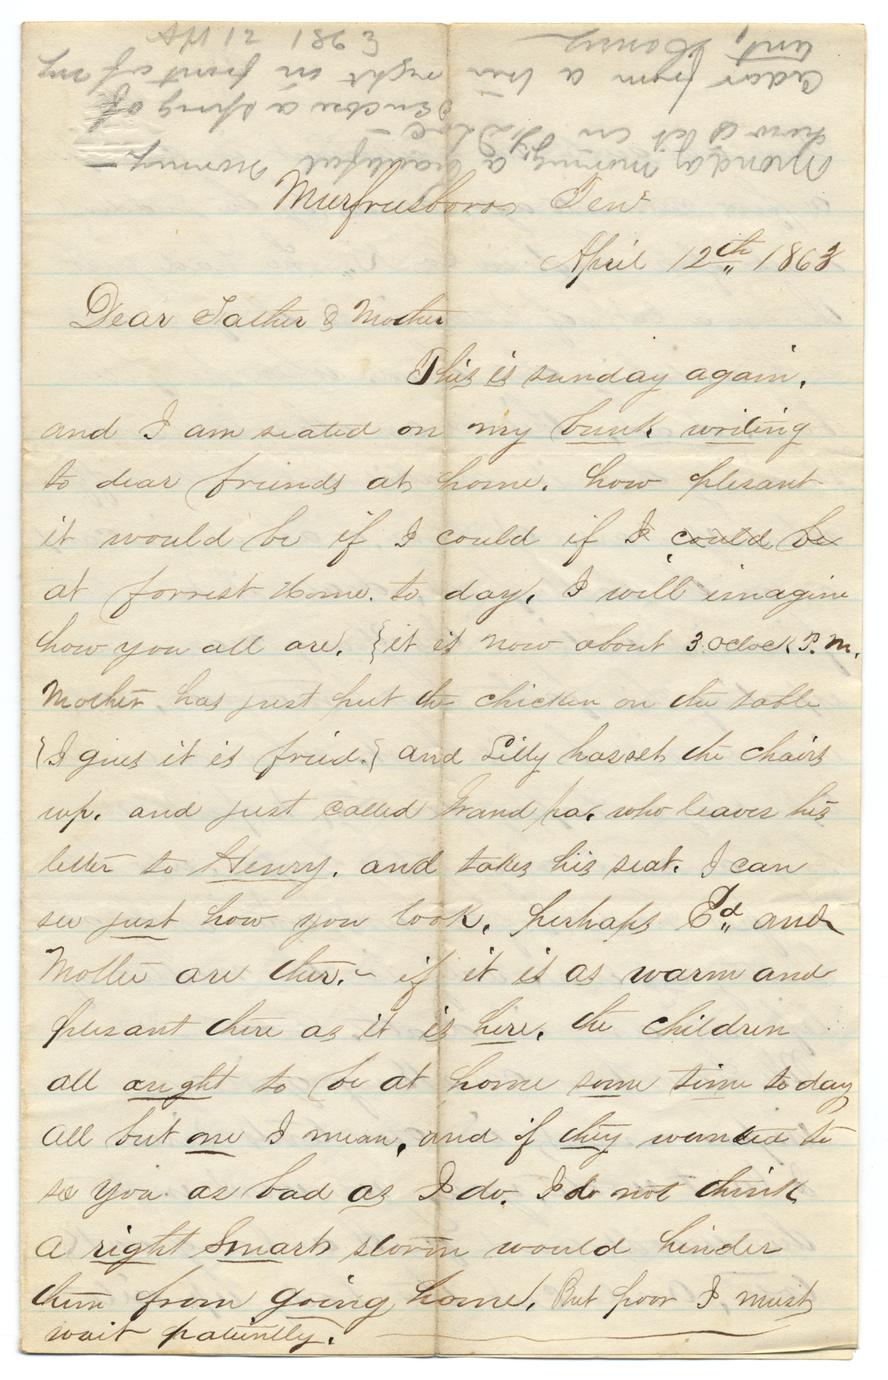 Monday morning, a beautiful morning —
how is it in
Enclose a sprig of
cedar from a tree right in front of my
tent, Henry
Apl 12 1863
Murfreesboro Ten
April 12th 1863
Dear Father & Mother
This is sunday again.
and I am seated on my bunk writing
to dear friends at home. how plesant
it would be if I could if I could be
at forrest Home. to day. I will imagine
how you all are. {it is now about 3 oclock P.M.
Mother has just put the chicken on the table
{I gues it is fried.} and Lilly has set the chairs
up. and just called Grand pa. who leaves his
letter to Henry. and takes his seat. I can
see just how you look. perhaps Ed and
Mollie are ther. ~ if it is as warm and
plesant there as it is here. the children
all aught to be at home some time to day
all but one I mean, and if they wanted to
se you as bad as I do. I do not think
a right smart storm would hinder
them from going home. But poor I must
wait patiently.